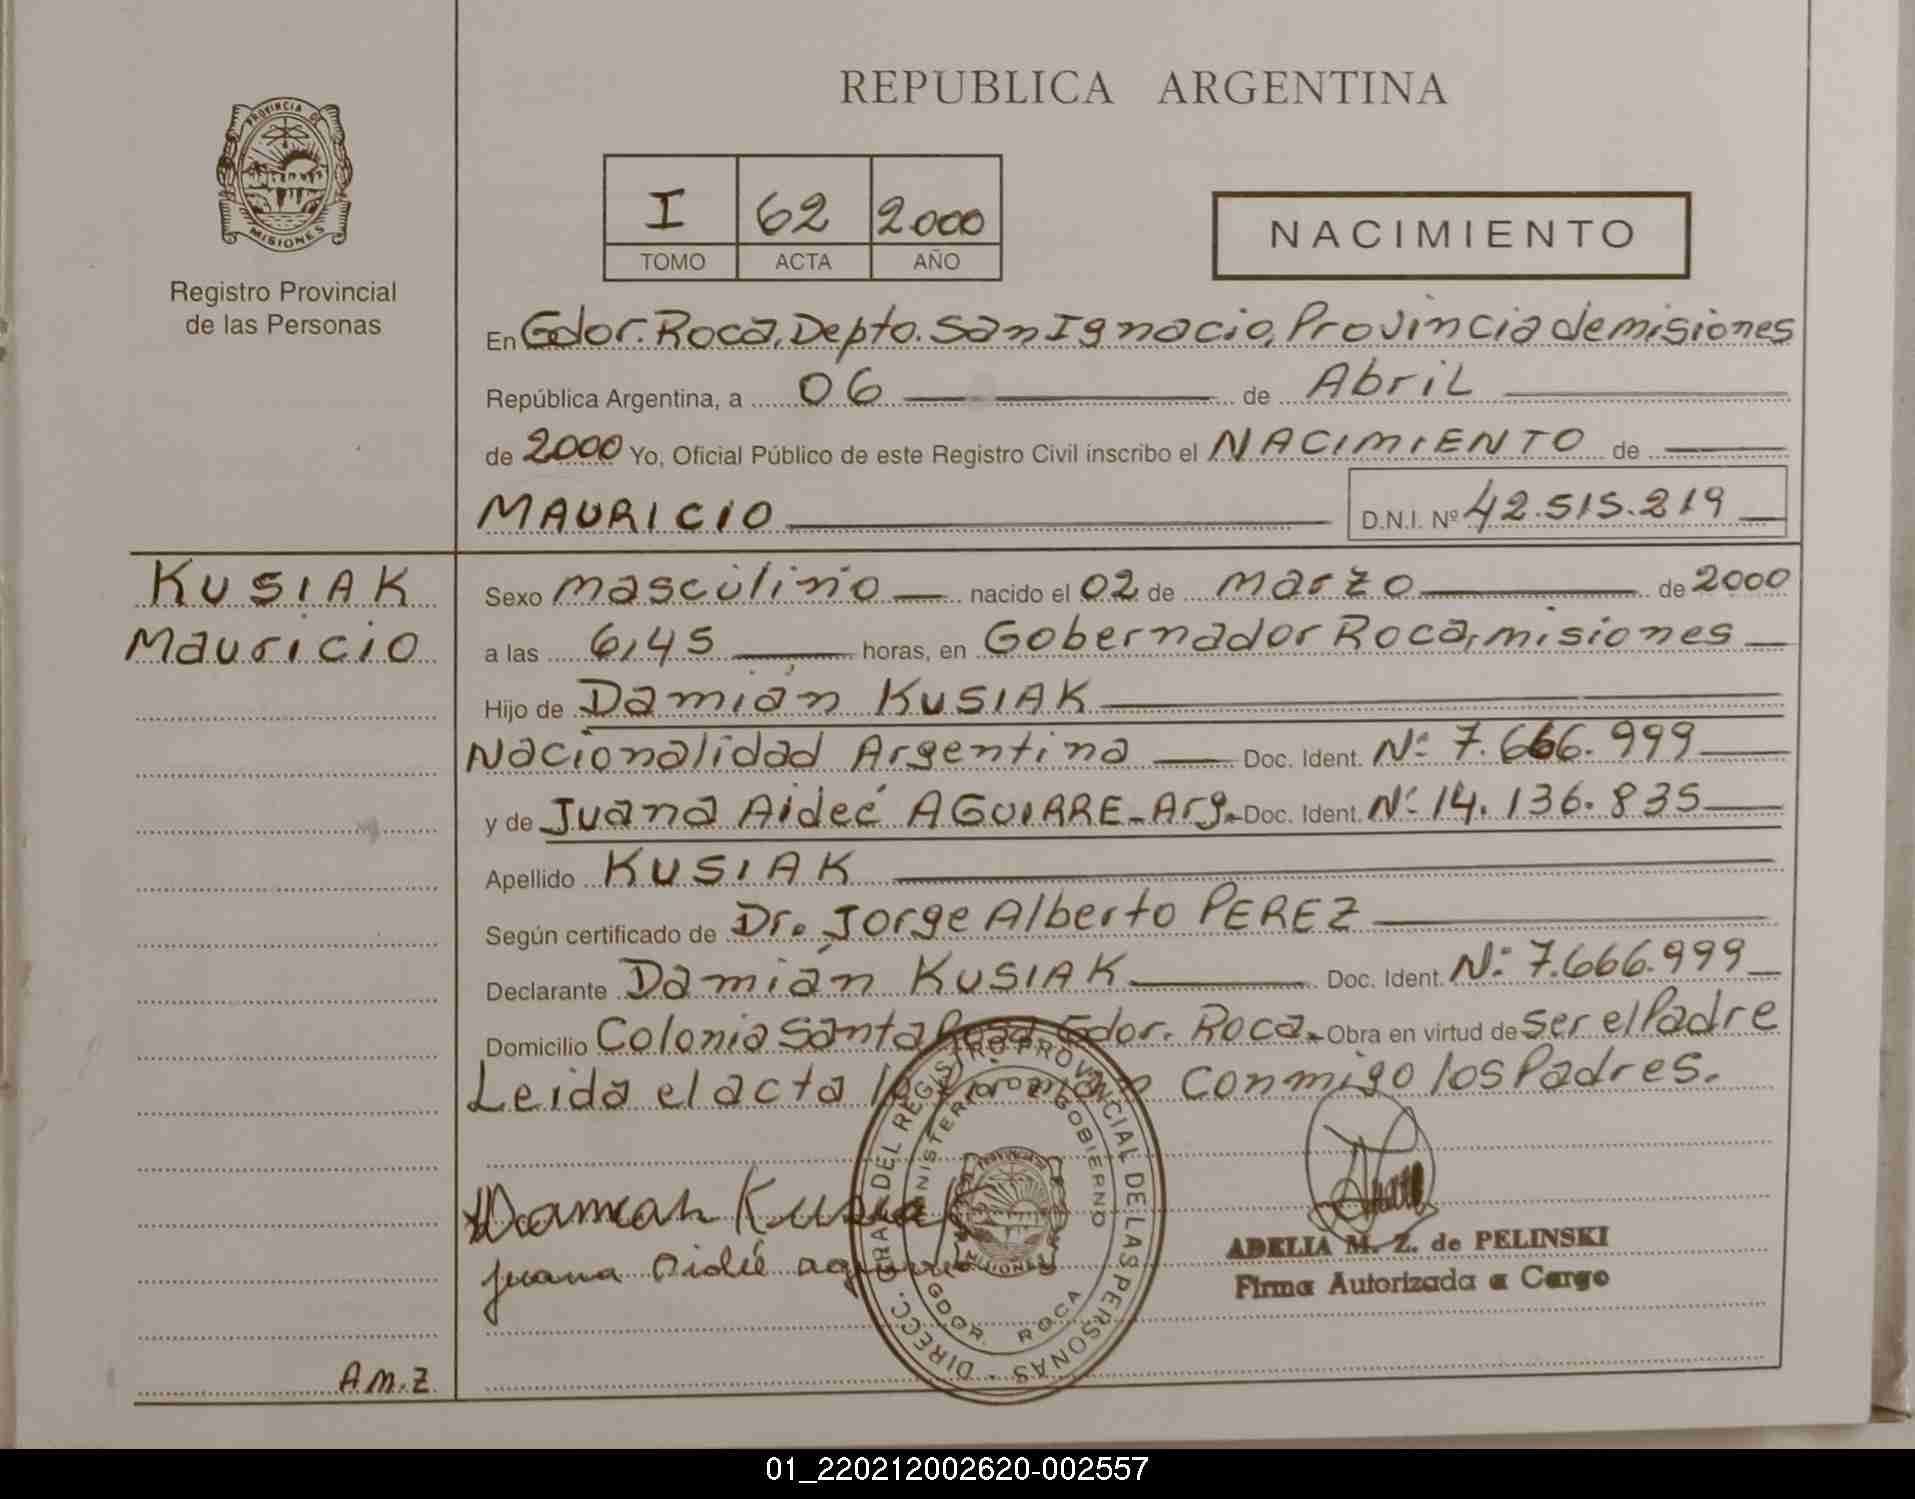 REPUBLICA ARGENTINA
PROVINCIA DE
MISIONES
Registro Provincial
de las Personas
I 62 2000
TOMO ACTA AÑO
NACIMIENTO
En Gdor. Roca, Depto. San Ignacio, Provincia de misiones
República Argentina, a 06 de Abril
de 2000 Yo, Oficial Público de este Registro Civil inscribo el NACIMIENTO de
MAURICIO D.N.I. Nº 42.515.219
KUSIAK
Mauricio
Sexo masculino nacido el 02 de marzo de 2000
a las 6,45 horas, en Gobernador Roca, misiones
Hijo de Damián KUSIAK
Nacionalidad Argentina Doc. Ident. Nº 7.666.999
y de Juana Aideé AGUIRRE - Arg. Doc. Ident. Nº 14.136.835
Apellido KUSIAK
Según certificado de Dr. Jorge Alberto PEREZ
Declarante Damián KUSIAK Doc. Ident. Nº 7.666.999
Domicilio Colonia Santa Rosa Gdor. Roca. Obra en virtud de ser el Padre
Leida el acta la firman conmigo los Padres.
Damian Kusiak
Juana Aideé aguirre
DIRECC. GRAL DEL REGISTRO PROVINCIAL DE LAS PERSONAS
MINISTERIO DE GOBIERNO
GDOR. ROCA
PROVINCIA DE
MISIONES
ADELIA M. Z. de PELINSKI
Firma Autorizada a Cargo
A.M.Z.
01_220212002620-002557